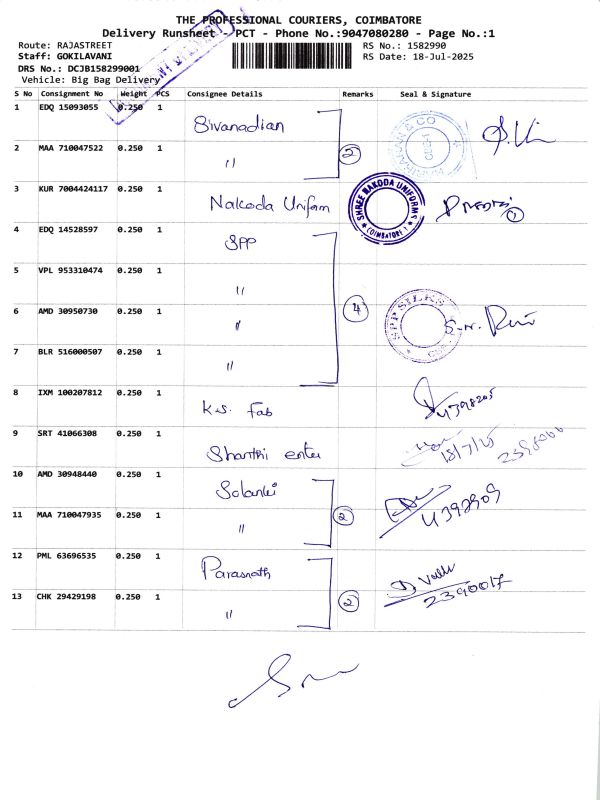 THE PROFESSIONAL COURIERS, COIMBATORE
Delivery Runsheet - PCT - Phone No.:9047080280 - Page No.:1
Route: RAJASTREET
RS No.: 1582990
Staff: GOKILAVANI
RS Date: 18-Jul-2025
DRS No.: DCJB158299001
Vehicle: Big Bag Delivery
S No Consignment No Weight PCS Consignee Details Remarks Seal & Signature
1 EDQ 15093055 0.250 1 Sivanadian
2 MAA 710047522 0.250 1 " 2
3 KUR 7004424117 0.250 1 Nakoda Uniform SHREE NAKODA UNIFORMS COIMBATORE 1
4 EDQ 14528597 0.250 1 SPP
5 VPL 953310474 0.250 1 "
6 AMD 30950730 0.250 1 " 4 SPP SILKS
7 BLR 516000507 0.250 1 "
8 IXM 100207812 0.250 1 K.S. Fab 4398205
9 SRT 41066308 0.250 1 Shanthi enter 18/7/25
10 AMD 30948440 0.250 1 Solanki
11 MAA 710047935 0.250 1 " 2 4392909
12 PML 63696535 0.250 1 Parasnath
13 CHK 29429198 0.250 1 " 2 2390017